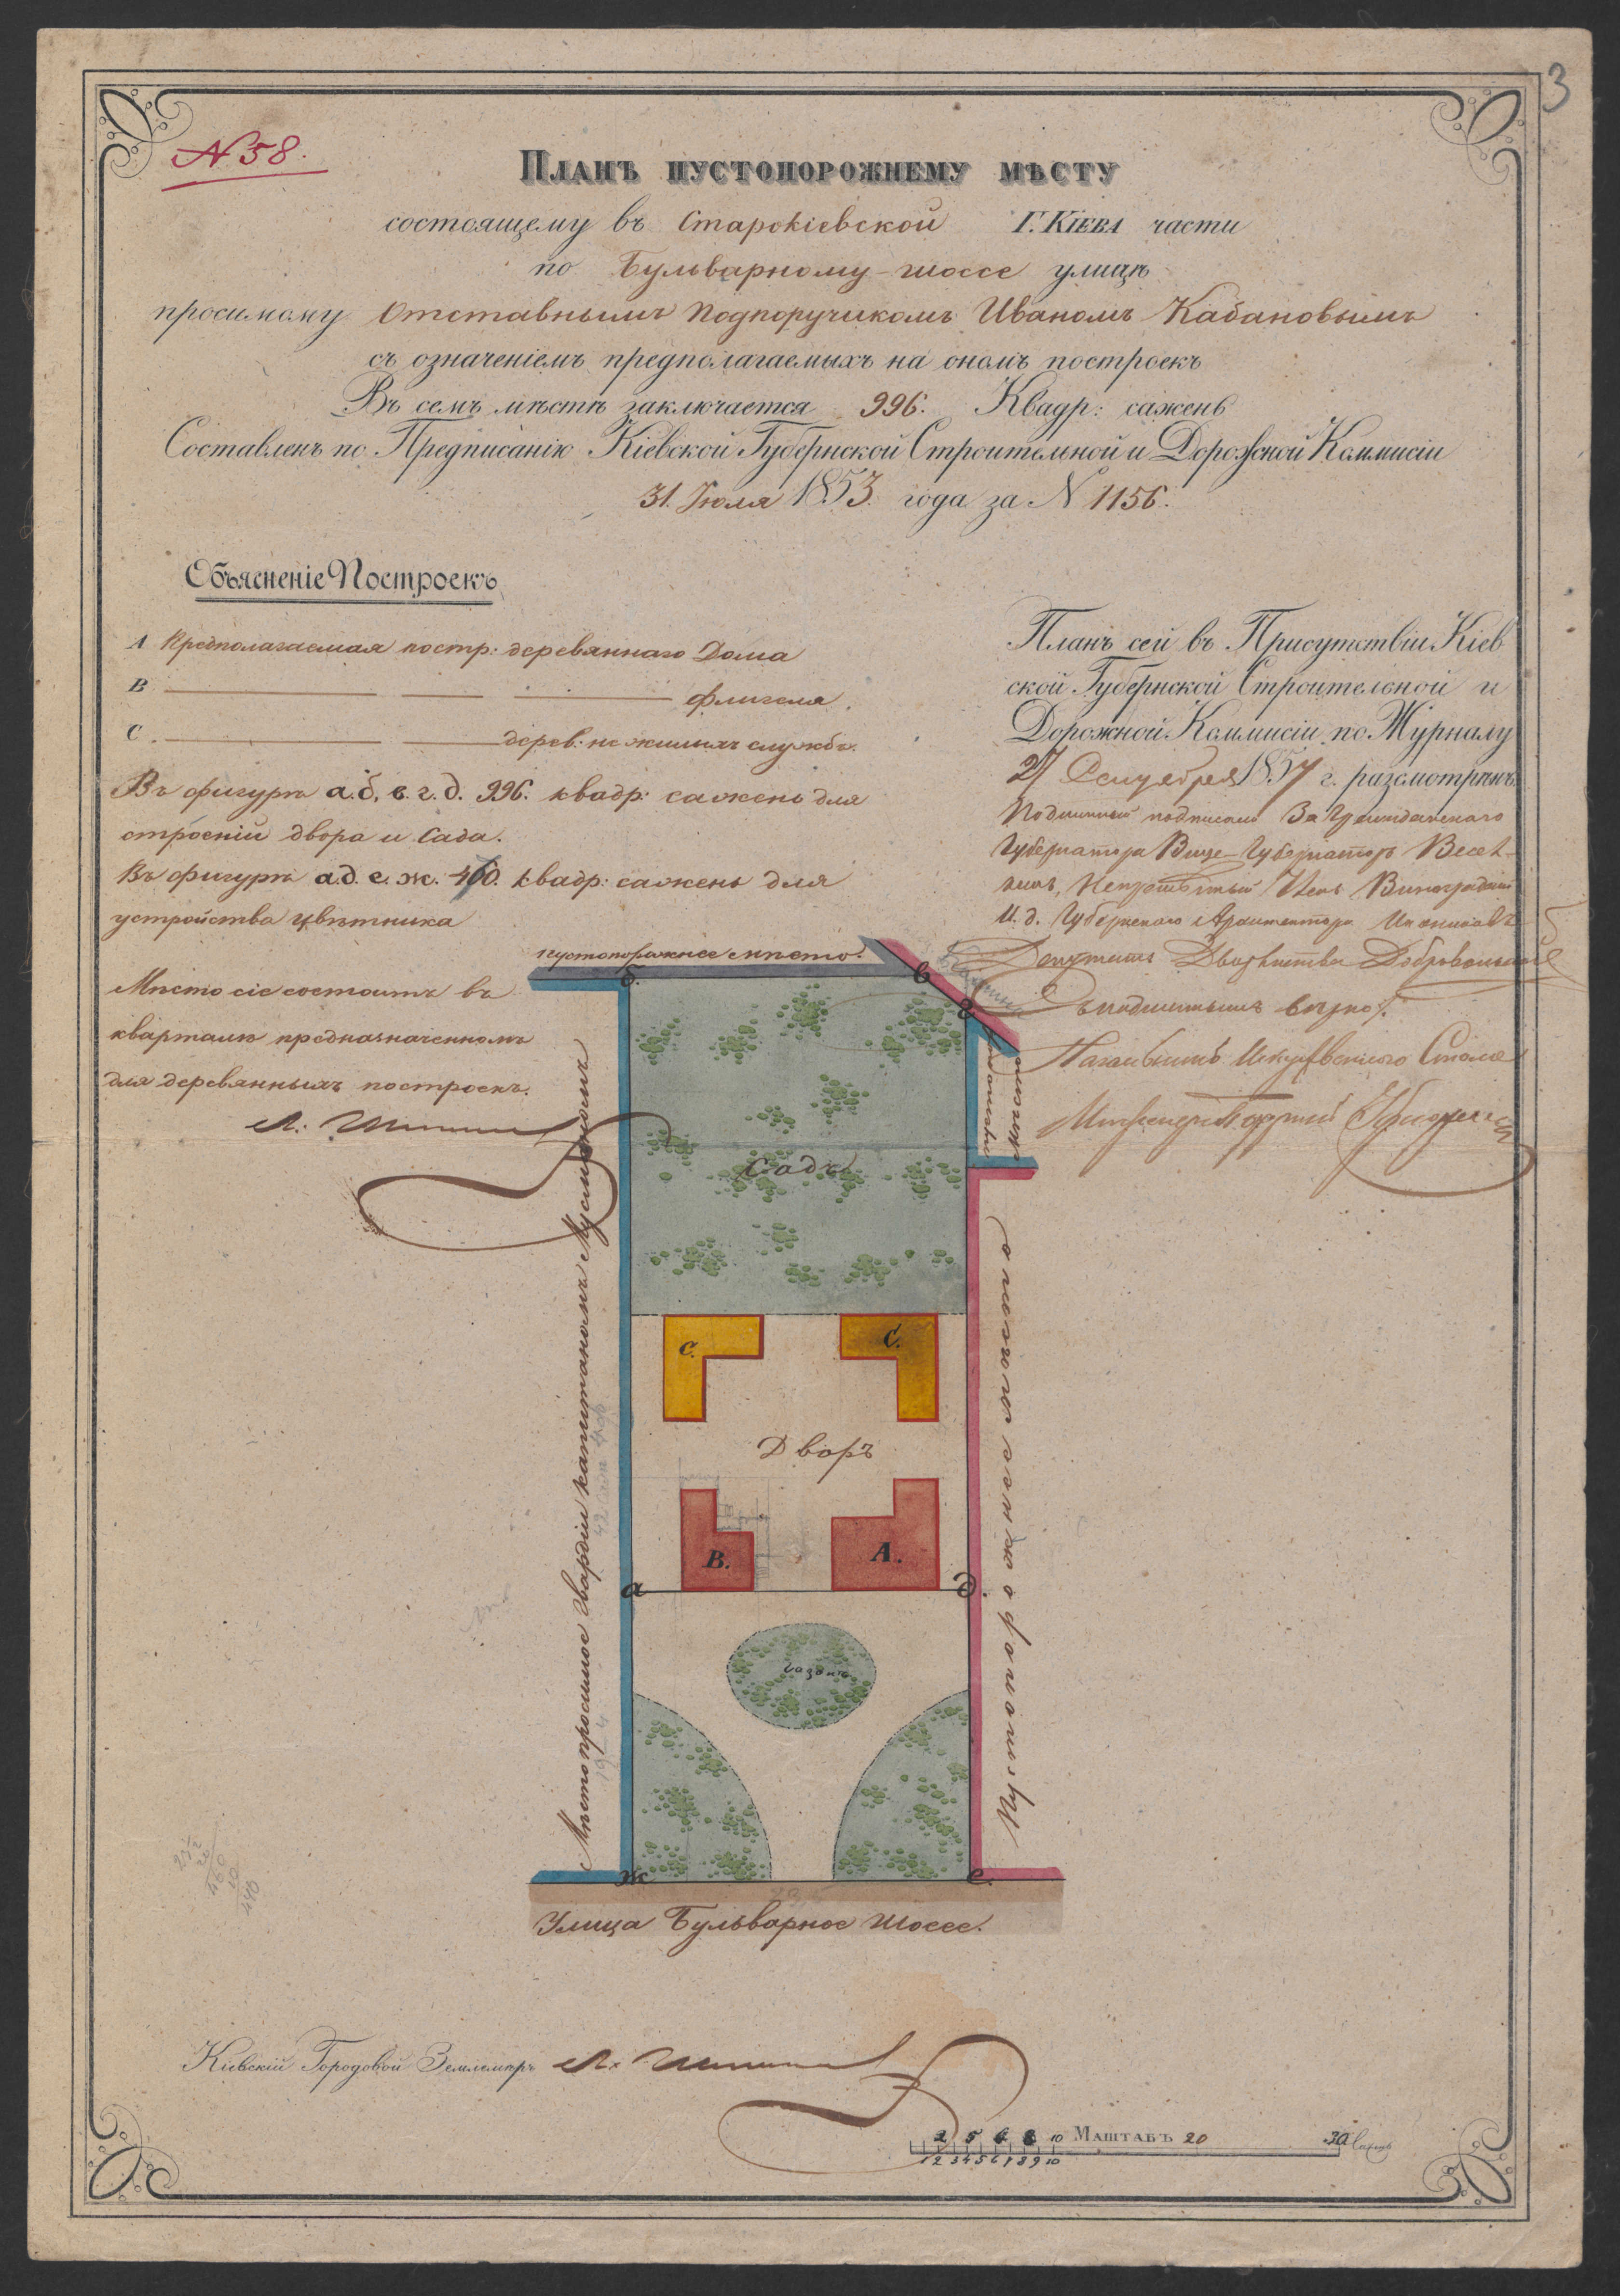 3
N 58.
Планъ пустопорожнему мѣсту
состоящему въ Старокіевской Г. Кіева части
по Бульварному-шоссе улицѣ
просимому Отставнымъ Подпоручикомъ Иваномъ Кабановымъ
съ означеніемъ предполагаемыхъ на ономъ построекъ
Въ семъ мѣстѣ заключается 996. Квадр: сажень
Составленъ по Предписанію Кіевской Губернской Строительной и Дорожной Коммисіи
31. Іюля 1853. года за N 1156.
Объясненіе Построекъ
А Предполагаемая постр: деревяннаго Дома
В флигеля.
С. дерев: не жилыхъ службъ.
Въ фигурѣ а.б,в.г.д. 996. квадр: сажень для
строеній двора и Сада.
Въ фигурѣ а.д.е.ж. квадр: сажень для
устройства цвѣтника
Мѣсто сіе состоитъ въ
кварталѣ предназначенномъ
для деревянныхъ построекъ.
Планъ сей въ Присутствіи Кіев
ской Губернской Строительной и
Дорожной Коммисіи по Журналу
27 Сентября 1857 г. разсмотрѣнъ
Подлинный подписали За Гражданскаго
Губернатора Вице-Губернаторъ
И. д. Губернскаго Архитектора
Депутатъ Дворянства
Съ подлиннымъ вѣрно:
пустопорожнее мѣсто.
б.
в
г
Садъ
Мѣсто просимое Гвардіи капитаномъ
Пустопорожнее мѣсто
С.
С.
Дворъ
В.
А.
а
д.
газонъ
ж
е.
Улица Бульварное Шоссе.
Кіевскій Городовой Землемѣръ
2 5 6 8 10 Маштабъ 20 30 Сажень
1 2 3 4 5 6 7 8 9 10